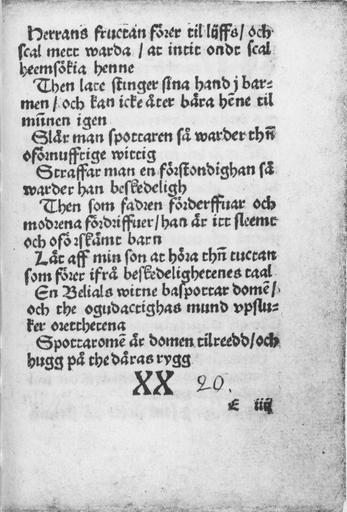 Herrans fructan förer til lijffs / och
scal mett warda / at intit ondt scal
heemsökia henne
Then late stinger sina hand j bar-
men / och kan icke åter bära hēne til
mūnen igen
Slår man spottaren så warder thn̄
oförnufftige wittig
Straffar man en förstondighan så
warder han beskedeligh
Then som fadren förderffuar och
modrena fördriffuer / han är itt sleemt
och oförskämt barn
Låt aff min son at höra thn̄ tuctan
som förer ifrå beskedelighetenes taal
En Belials witne baspottar domē /
och the ogudactighas mund vpsluk-
ker orettherena
Spottaromē är domen tilreedd / och
hugg på the dåras rygg
XX 20.
E iiij